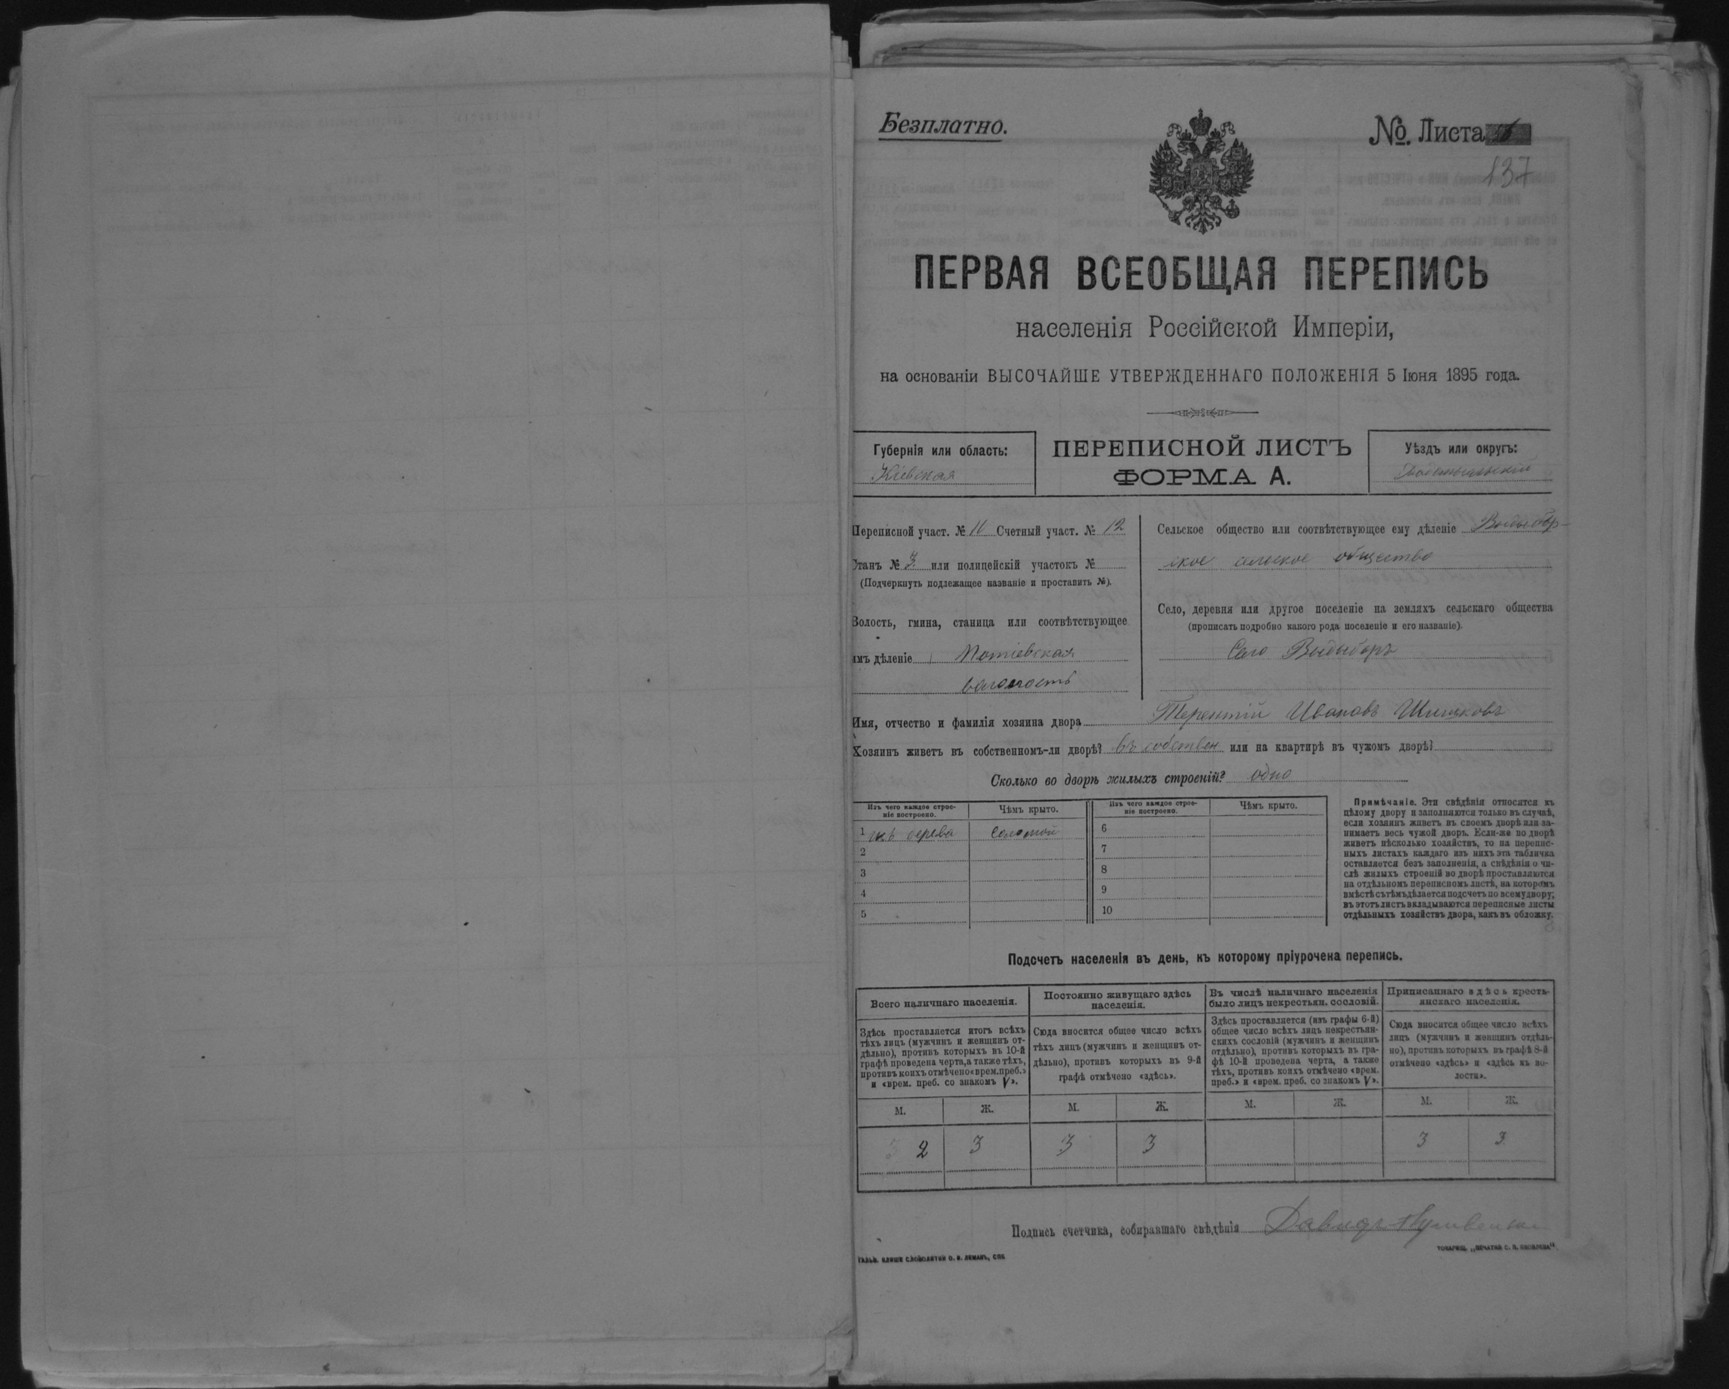 Безплатно.
№. Листа
137
ПЕРВАЯ ВСЕОБЩАЯ ПЕРЕПИСЬ
населенія Россійской Имперіи,
на основаніи ВЫСОЧАЙШЕ УТВЕРЖДЕННАГО ПОЛОЖЕНІЯ 5 Іюня 1895 года.
Губернія или область:
Кіевская
ПЕРЕПИСНОЙ ЛИСТЪ
ФОРМА А.
Уѣздъ или округъ:
Переписной участ. № 11 Счетный участ. № 12
Станъ № 3 или полицейскій участокъ №
(Подчеркнуть подлежащее названіе и проставить №).
Волость, гмина, станица или соотвѣтствующее
имъ дѣленіе Потіевская
волость
Сельское общество или соотвѣтствующее ему дѣленіе Выдыбор-
ское сельское общество
Село, деревня или другое поселеніе на земляхъ сельскаго общества
(прописать подробно какого рода поселеніе и его названіе).
Село Выдыборъ
Имя, отчество и фамилія хозяина двора Терентій Ивановъ Шишковъ
Хозяинъ живетъ въ собственномъ-ли дворѣ? въ собствен или на квартирѣ въ чужомъ дворѣ?
Сколько во дворѣ жилыхъ строеній? одно
Изъ чего каждое строе-
ніе построено.
Чѣмъ крыто.
1 изъ дерева соломой
2
3
4
5
Изъ чего каждое строе-
ніе построено.
Чѣмъ крыто.
6
7
8
9
10
Примѣчаніе. Эти свѣдѣнія относятся къ
цѣлому двору и заполняются только въ случаѣ,
если хозяинъ живетъ въ своемъ дворѣ или за-
нимаетъ весь чужой дворъ. Если-же во дворѣ
живетъ нѣсколько хозяйствъ, то на перепис-
ныхъ листахъ каждаго изъ нихъ эта табличка
оставляется безъ заполненія, а свѣдѣнія о чи-
слѣ жилыхъ строеній во дворѣ проставляются
на отдѣльномъ переписномъ листѣ, на которомъ
вмѣстѣ съ тѣмъ дѣлается подсчетъ по всему двору;
въ этотъ листъ вкладываются переписные листы
отдѣльныхъ хозяйствъ двора, какъ въ обложку.
Подсчетъ населенія въ день, къ которому пріурочена перепись.
Всего наличнаго населенія.
Здѣсь проставляется итогъ всѣхъ
тѣхъ лицъ (мужчинъ и женщинъ от-
дѣльно), противъ которыхъ въ 10-й
графѣ проведена черта, а также тѣхъ,
противъ коихъ отмѣчено «врем. преб.»
и «врем. преб. со знакомъ V».
М. Ж.
3 2 3
Постоянно живущаго здѣсь
населенія.
Сюда вносится общее число всѣхъ
тѣхъ лицъ (мужчинъ и женщинъ от-
дѣльно), противъ которыхъ въ 9-й
графѣ отмѣчено «здѣсь».
М. Ж.
3 3
Въ числѣ наличнаго населенія
было лицъ некрестьян. сословій.
Здѣсь проставляется (изъ графы 6-й)
общее число всѣхъ лицъ некрестьян-
скихъ сословій (мужчинъ и женщинъ
отдѣльно), противъ которыхъ въ гра-
фѣ 10-й проведена черта, а также
тѣхъ, противъ коихъ отмѣчено «врем.
преб.» и «врем. преб. со знакомъ V».
М. Ж.
Приписаннаго здѣсь кресть-
янскаго населенія.
Сюда вносится общее число всѣхъ
лицъ (мужчинъ и женщинъ отдѣль-
но), противъ которыхъ въ графѣ 8-й
отмѣчено «здѣсь» и «здѣсь къ во-
лости».
М. Ж.
3 3
Подпись счетчика, собиравшаго свѣдѣнія Давидъ